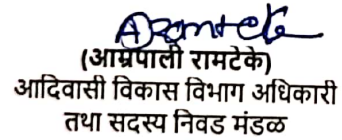 (आम्रपाली रामटेके)
आदिवासी विकास विभाग अधिकारी
तथा सदस्य निवड मंडळ